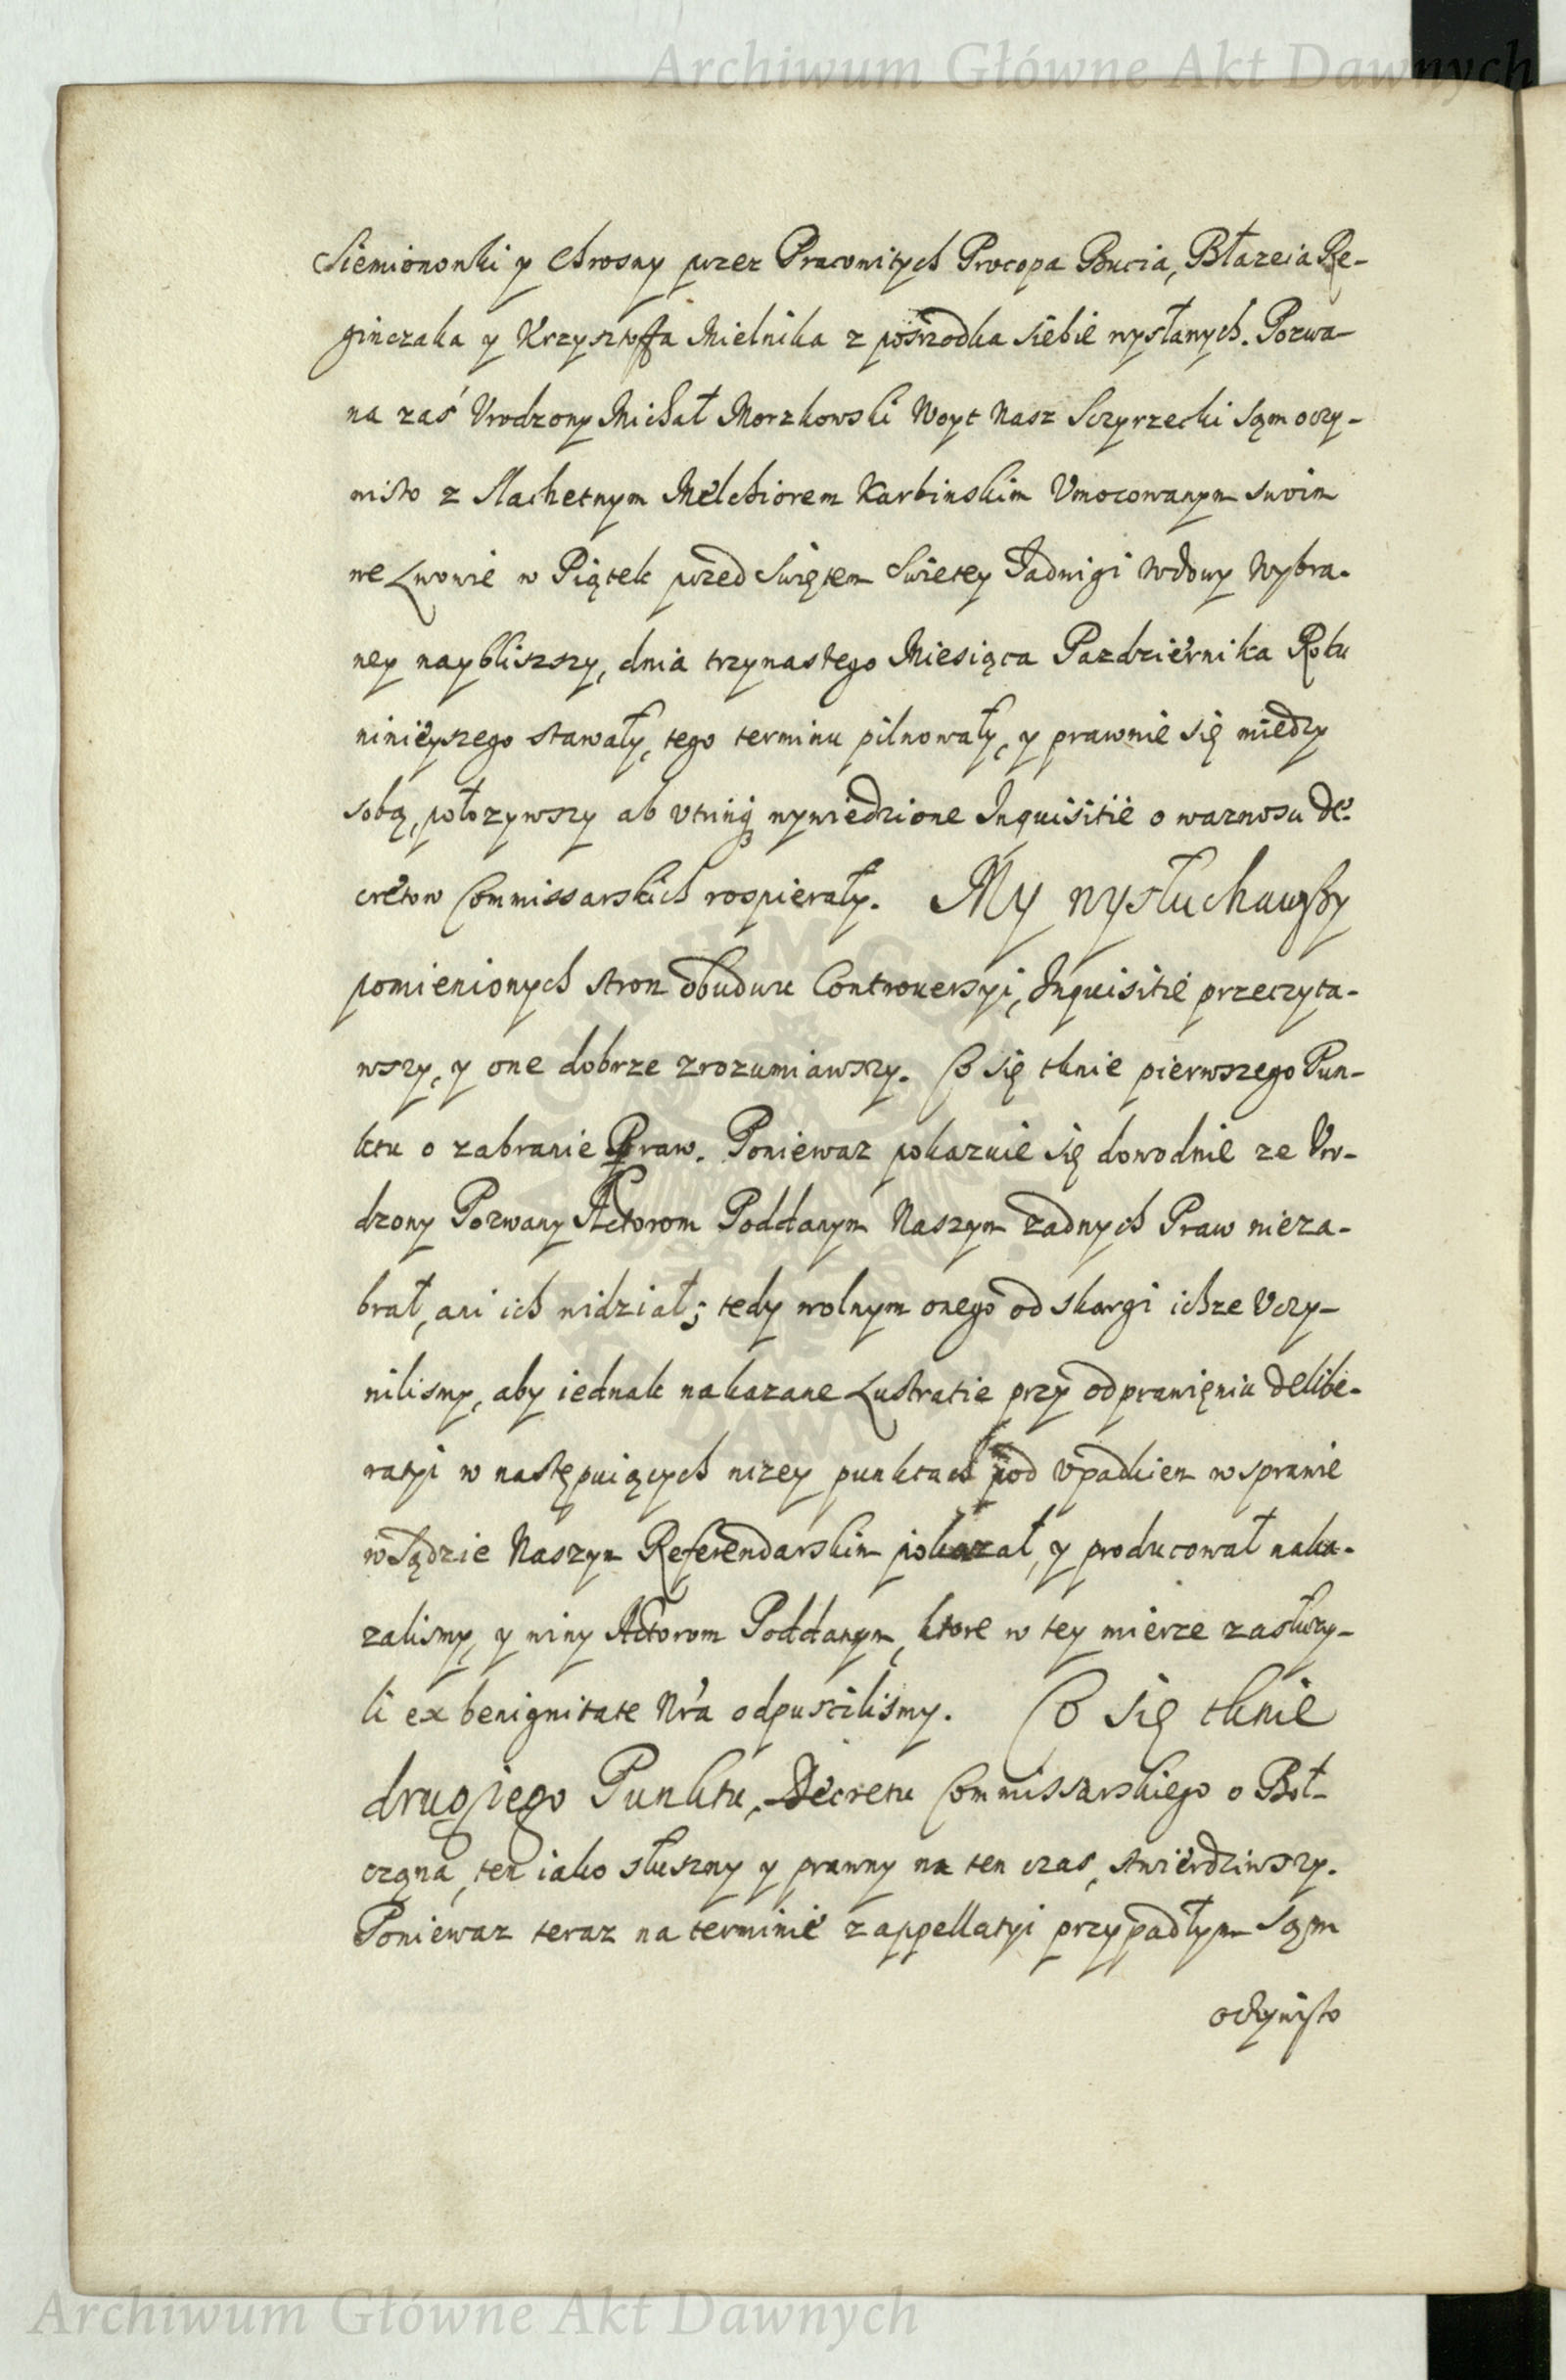 Archiwum Główne Akt Dawnych
Siemionowki y Chrosny przez Pracowitych Procopa Bucia, Błazeia Re-
ginczaka y Krzysztoffa Mielnika z posrzodka siebie wysłanych. Pozwa-
na zaś Vrodzony Michał Morzkowski Woyt Nasz Sczyrzecki sąm oczy-
wisto z Slachetnym Melchiorem Karbinskim Vmocowanym swoim
we Lwowie w Piątek przed Swiętem Swietey Jadwigi Wdowy Wybra-
ney naybliszszy, dnia trzynastego Miesiąca Pazdziernika Roku
ninieyszego stawały, tego terminu pilnowały, y prawnie się miedzy
sobą, położywszy ab utrinq wywiedzione Inquisitie o waznosci De-
cretow Commissarskich rospierały. My wysłuchawszy
pomienionych stron obudwu Controuersyi, Inquisitie przeczyta-
wszy, y one dobrze zrozumiawszy. Co się tknie pierwszego Pun-
ktu o zabranie Praw. Poniewaz pokazuie się dowodnie ze Vro-
dzony Pozwany Actorom Poddanym Naszym zadnych Praw nieza-
brał, ani ich widział; tedy wolnym onego od skargi ichze Vczy-
nilismy, aby iednak nakazane Lustratie przy odprawięniu Delibe-
ratyi w następuiących nizey punktach pod Vpadkiem w sprawie
w Sądzie Naszym Referendarskim pokazał, y producował naka-
zalismy, y winy Actorom Poddanym, ktore w tey mierze zasłuzy-
li ex benignitate Nra odpuscilismy. Co się tknie
drugiego Punktu, Decretu Commissarskiego o Bot-
czqna, ten iako słuszny y prawny na ten czas, stwierdziwszy.
Poniewaz teraz na terminie z appellatyi przypadłym sąm
oczywisto
Archiwum Główne Akt Dawnych